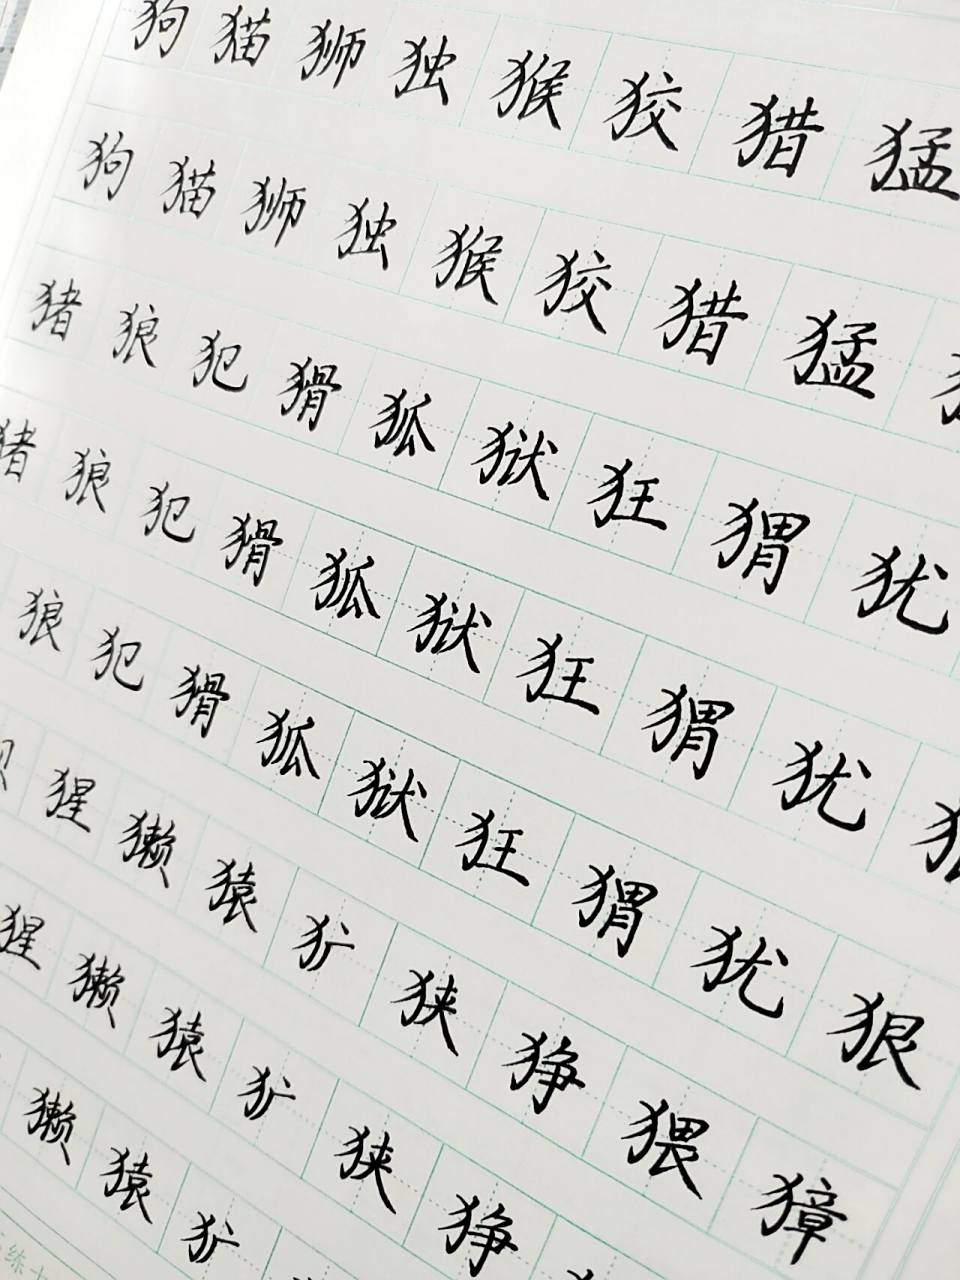 狗猫狮独猴狡猎猛
狗猫狮独猴狡猎猛
猪狼犯猾狐狱狂猬犹
猪狼犯猾狐狱狂猬犹
狼犯猾狐狱狂猬犹狠
猩獭猿犷狭狰猥獐
猩獭猿犷狭狰
獭猿犷
练